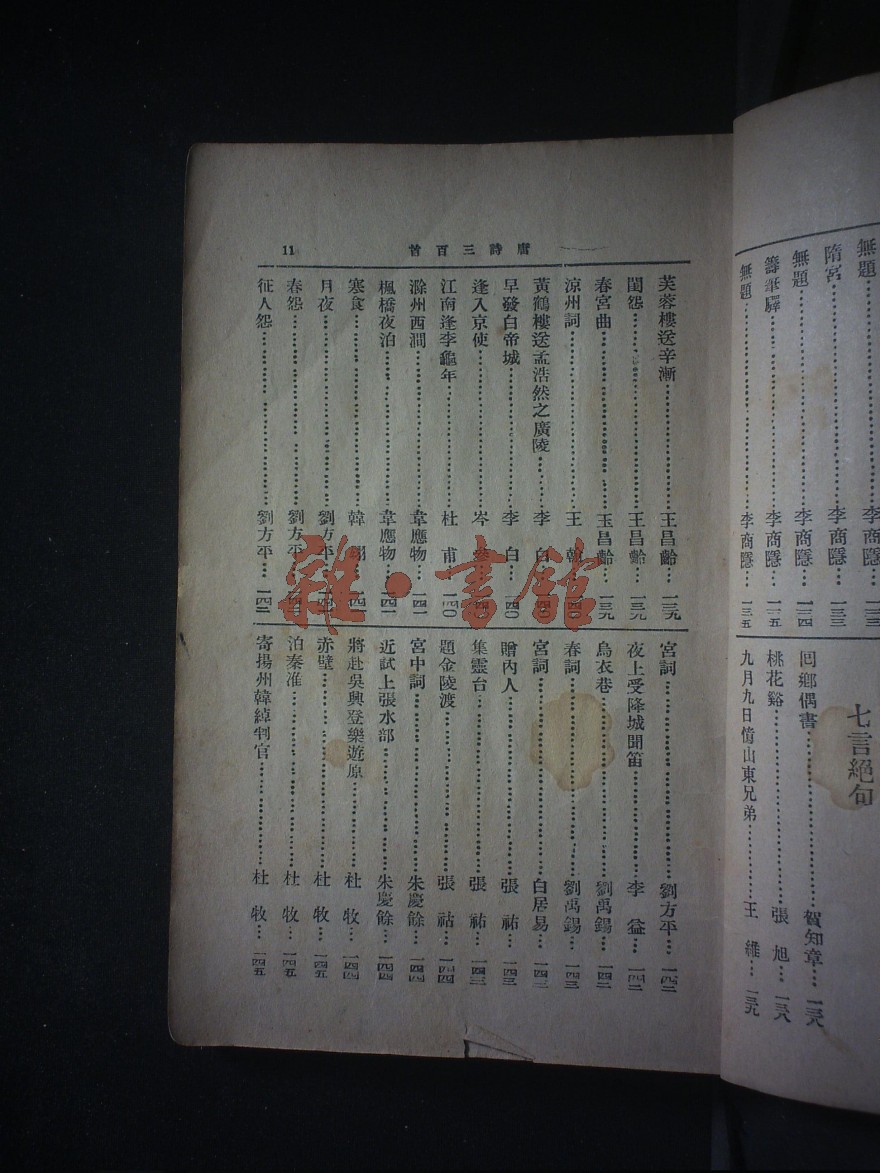 無題……李商隱…一三三
隋宮……李商隱…一三三
無題……李商隱…一三四
籌筆驛……李商隱…一三五
無題……李商隱…一三五
七言絕句
回鄉偶書……賀知章…一三八
桃花谿……張旭…一三八
九月九日憶山東兄弟……王維…一三九
唐詩三百首
11
芙蓉樓送辛漸……王昌齡…一三九
閨怨……王昌齡…一三九
春宮曲……王昌齡…一三九
涼州詞……王翰…一四〇
黃鶴樓送孟浩然之廣陵……李白…一四〇
早發白帝城……李白…一四〇
逢入京使……岑參…一四〇
江南逢李龜年……杜甫…一四〇
滁州西澗……韋應物…一四一
楓橋夜泊……韋應物…一四一
寒食……韓翃…一四一
月夜……劉方平…一四一
春怨……劉方平…一四二
征人怨……劉方平…一四二
宮詞……劉方平…一四二
夜上受降城聞笛……李益…一四二
烏衣巷……劉禹錫…一四二
春詞……劉禹錫…一四三
宮詞……白居易…一四三
贈內人……張祜…一四三
集靈台……張祜…一四三
題金陵渡……張祜…一四四
宮中詞……朱慶餘…一四四
近試上張水部……朱慶餘…一四四
將赴吳興登樂遊原……杜牧…一四四
赤壁……杜牧…一四五
泊秦淮……杜牧…一四五
寄揚州韓綽判官……杜牧…一四五
雜·書館